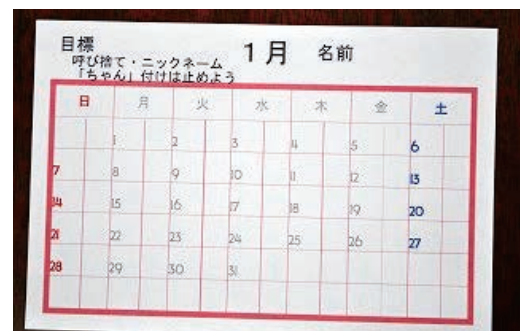 目標 1月 名前
呼び捨て・ニックネーム
「ちゃん」付けは止めよう
日 月 火 水 木 金 土
1 2 3 4 5 6
7 8 9 10 11 12 13
14 15 16 17 18 19 20
21 22 23 24 25 26 27
28 29 30 31